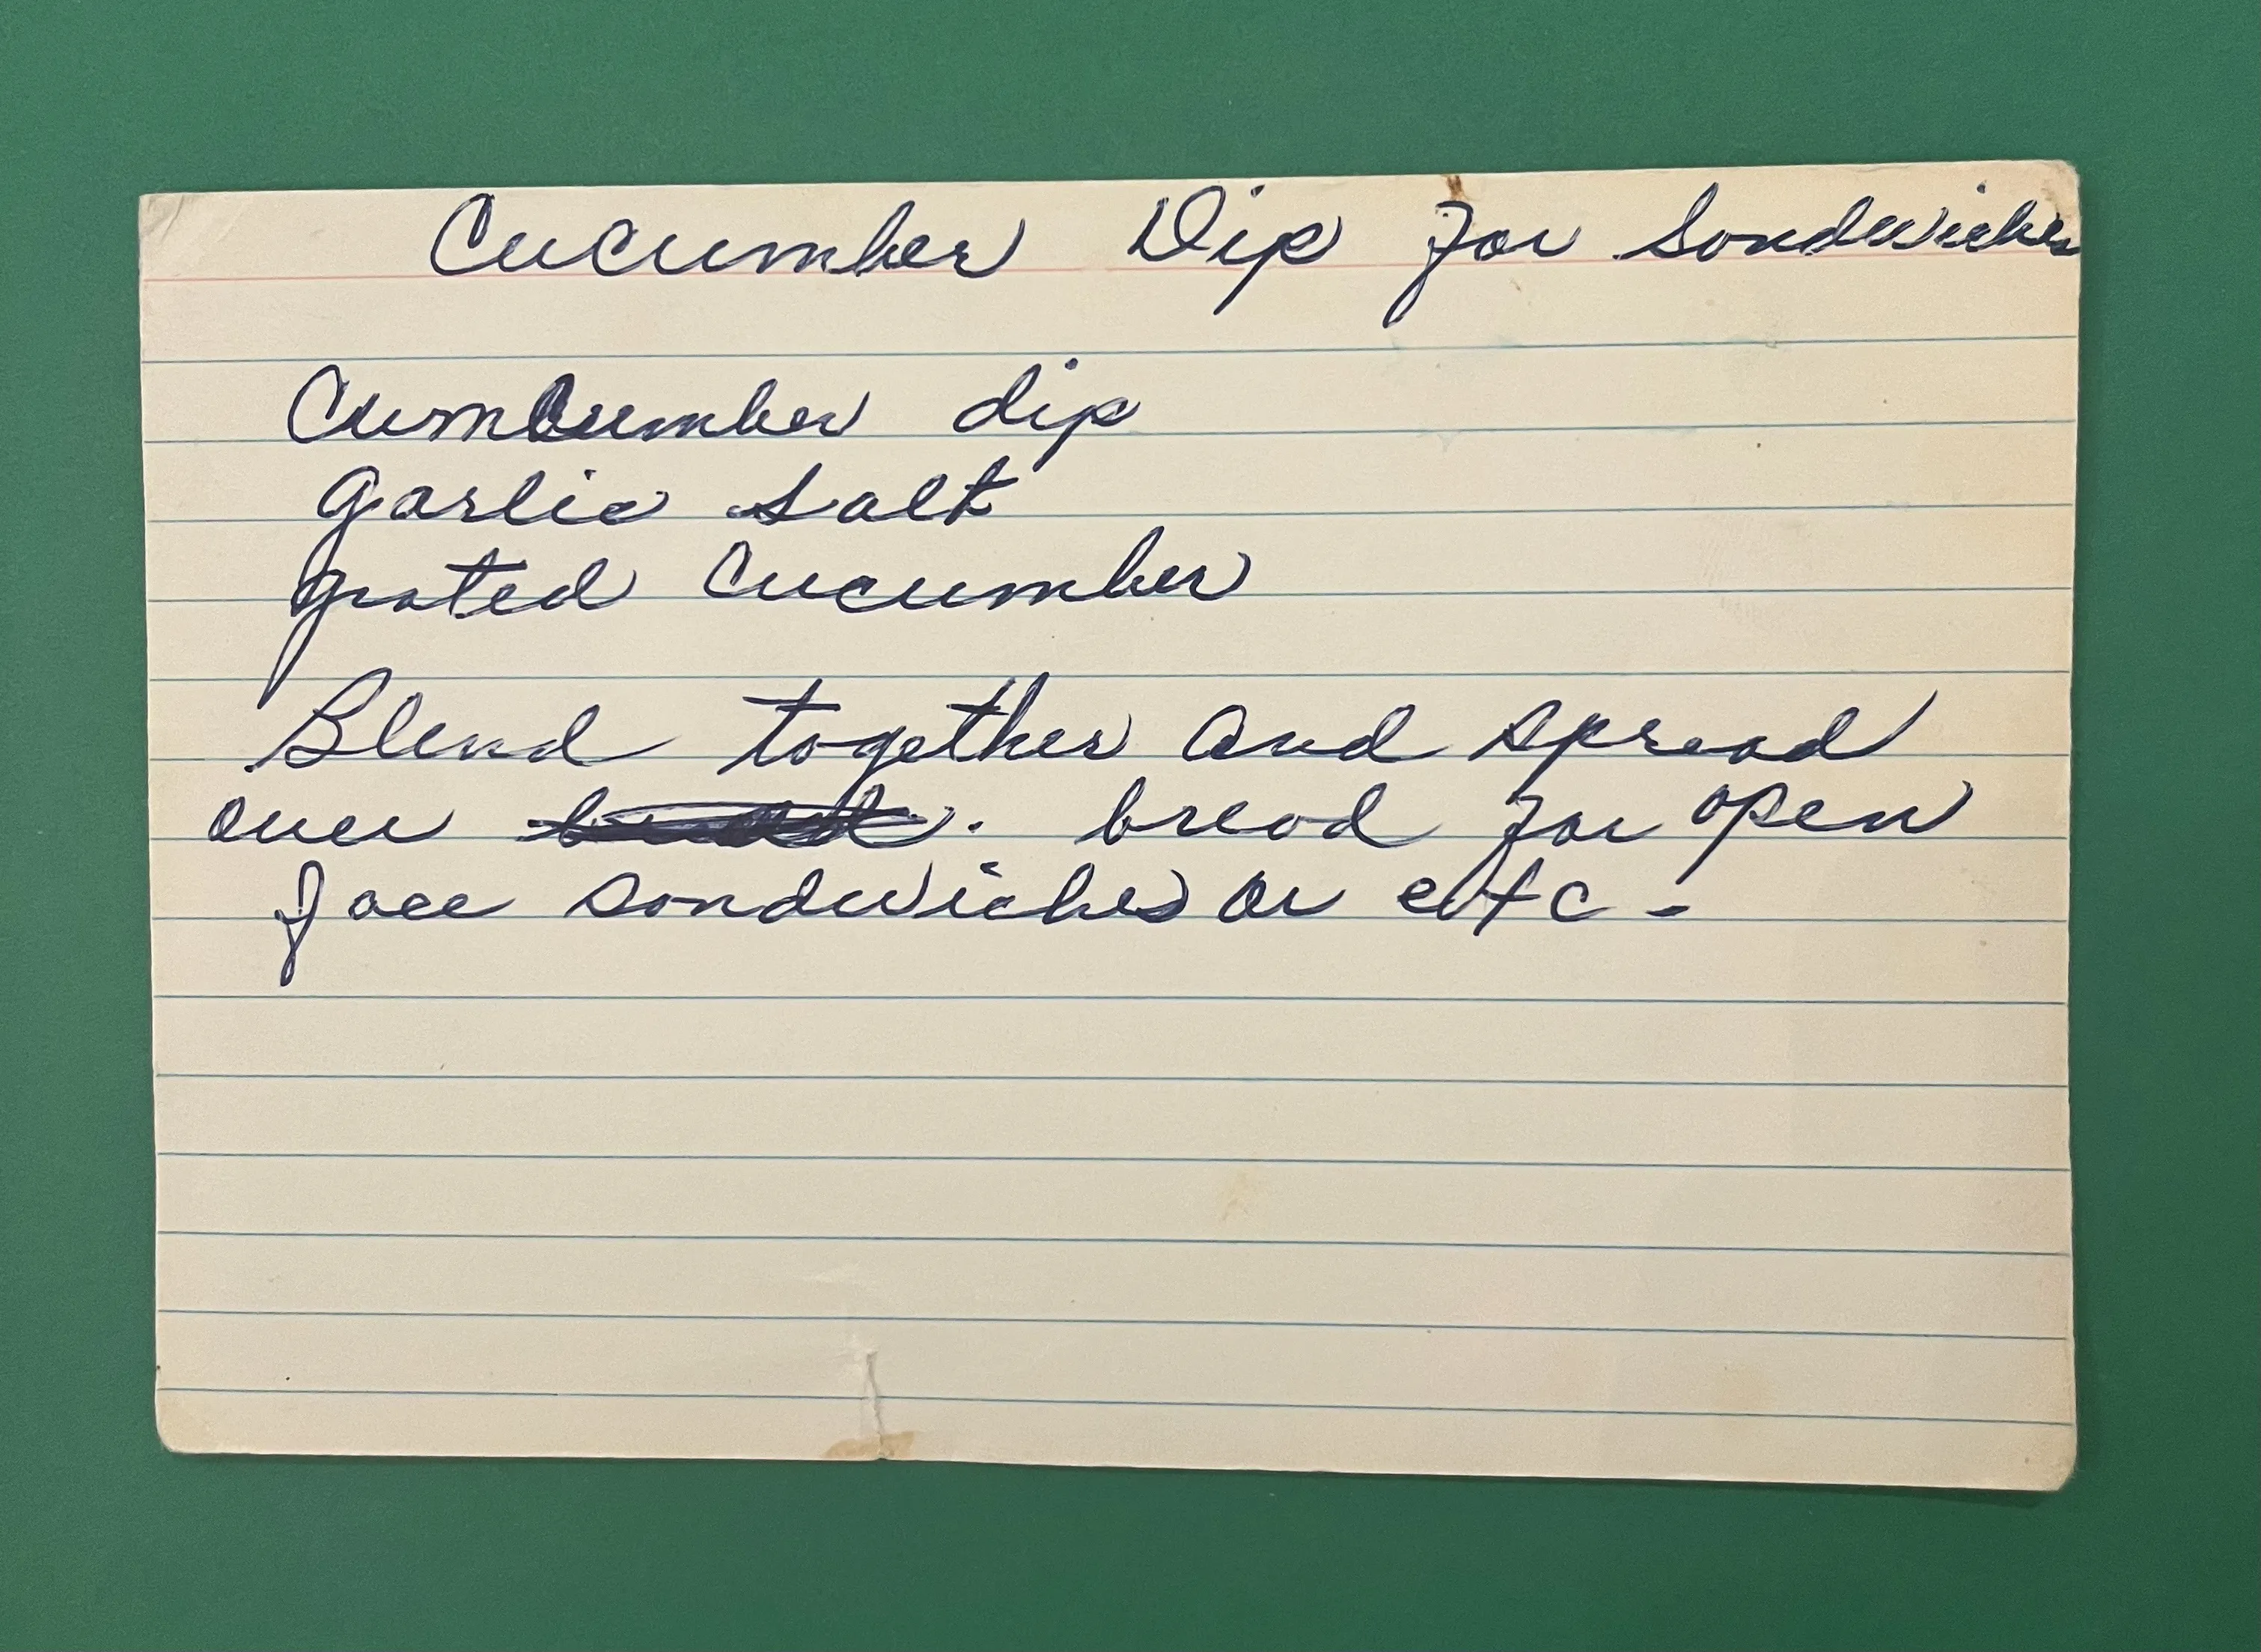 Cucumber Dip for Sandwiches
Cumcumber dip
garlic salt
grated Cucumber
Blend together and spread
over bread for open
face sandwiches or etc -